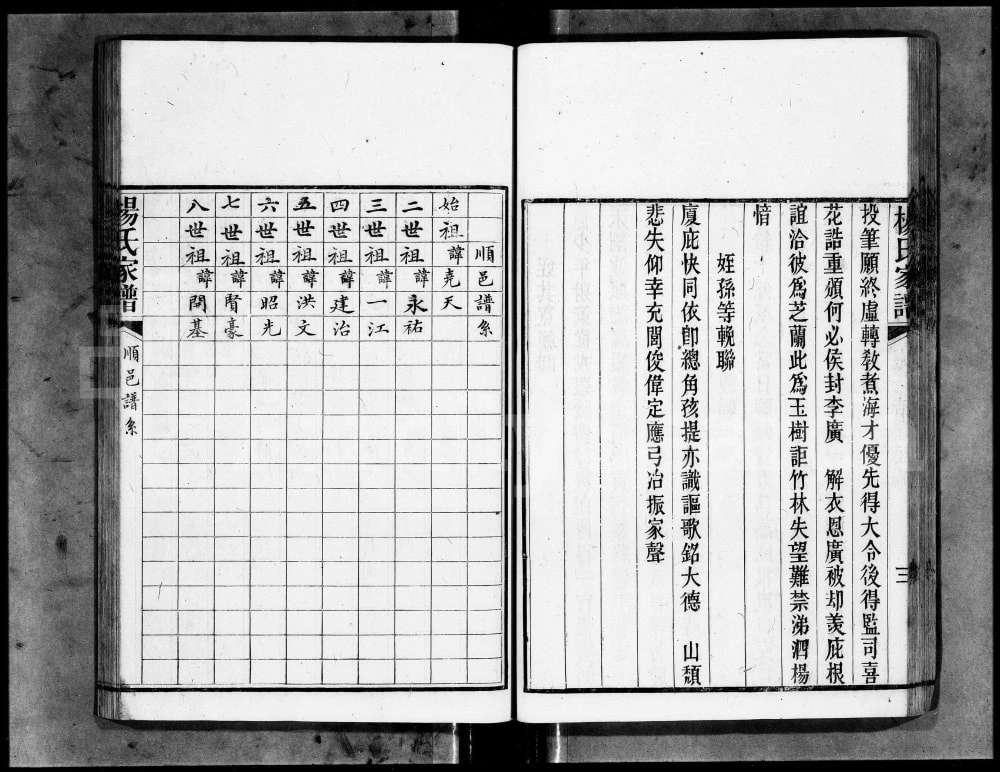 楊氏家譜
三
投筆願終虛轉教煮海才優先得大令後得監司喜
花誥重頒何必侯封李廣 解衣恩廣被却羨庇根
誼洽彼為芝蘭此為玉樹詎竹林失望難禁涕泗楊
愔
姪孫等輓聯
廈庇快同依卽總角孩提亦識謳歌銘大德 山頹
悲失仰幸充閭俊偉定應弓冶振家聲
順邑譜系
始祖諱堯天
二世祖諱永祐
三世祖諱一江
四世祖諱建治
五世祖諱洪文
六世祖諱昭光
七世祖諱賢豪
八世祖諱開基
楊氏家譜
順邑譜系